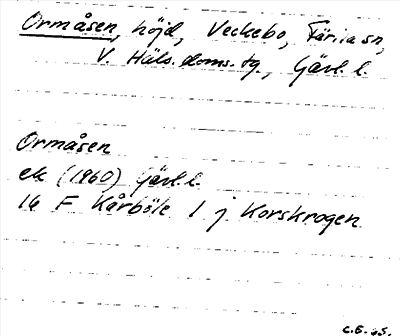 Ormåsen, höjd, Veckebo, Färila sn,
V. Häls. doms. tg., Gävl. l.
Ormåsen
ek (1960) Gävl. l.
16 F Kårböle 1 j Korskrogen